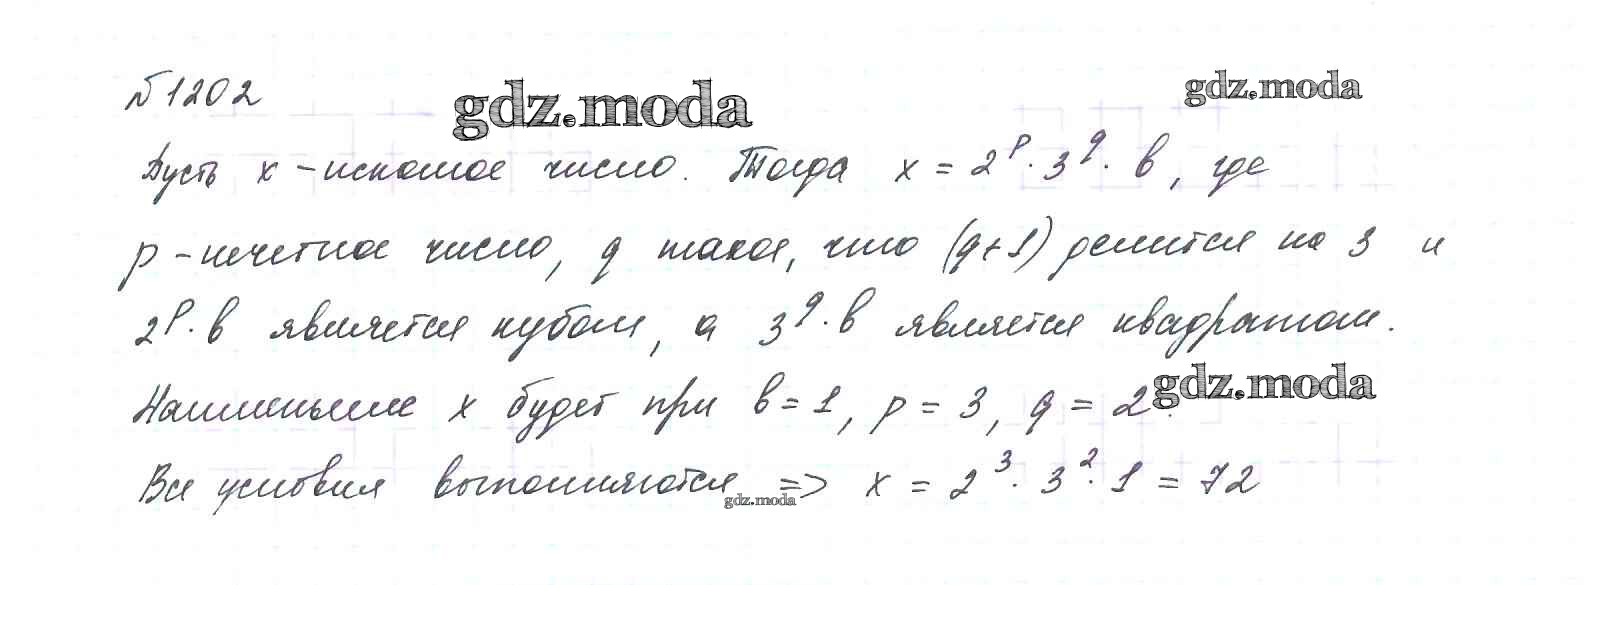 №1202
gdz.moda
gdz.moda
Пусть x - искомое число. Тогда x = 2^p · 3^q · b, где
p - нечетное число, q такое, что (q+1) делится на 3 и
2^p · b является кубом, а 3^q · b является квадратом.
gdz.moda
Наименьшие x будет при b = 1, p = 3, q = 2.
Все условия выполняются => x = 2^3 · 3^2 · 1 = 72
gdz.moda